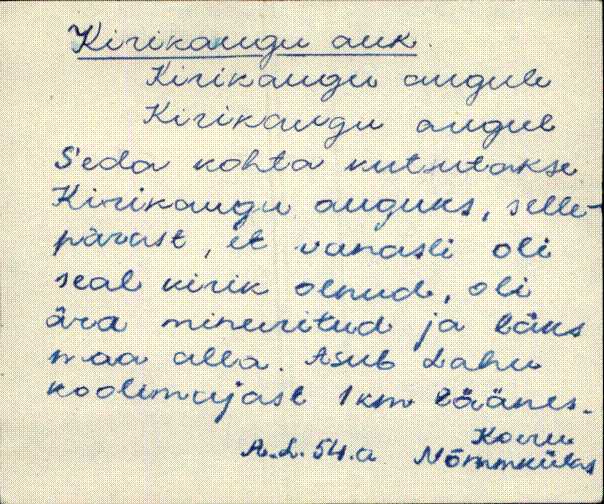 Kirikaugu auk.
Kirikaugu augule
Kirikaugu augul
Seda kohta kutsutakse
Kirikaugu auguks, selle-
pärast, et vanasti oli
seal kirik olnud, oli
ära mineeritud ja läks
maa alla. Asub Lahu
koolimajast 1 km läänes.
Koeru
A. L. 54. a Nõmmküla